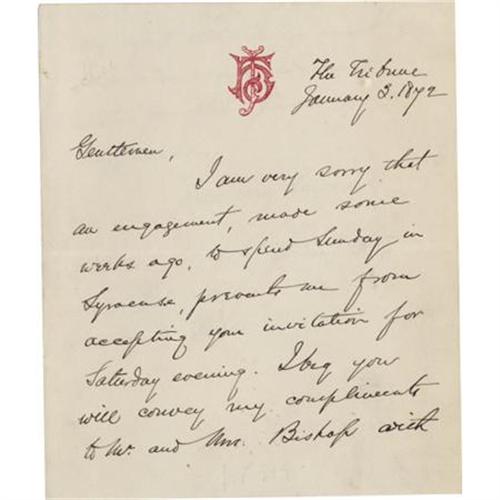 The Tribune
January 3. 1872
Gentlemen,
I am very sorry that
an engagement, made some
weeks ago, to spend Sunday in
Syracuse, prevents me from
accepting your invitation for
Saturday evening. I beg you
will convey my compliments
to Mr. and Mrs. Bishop with